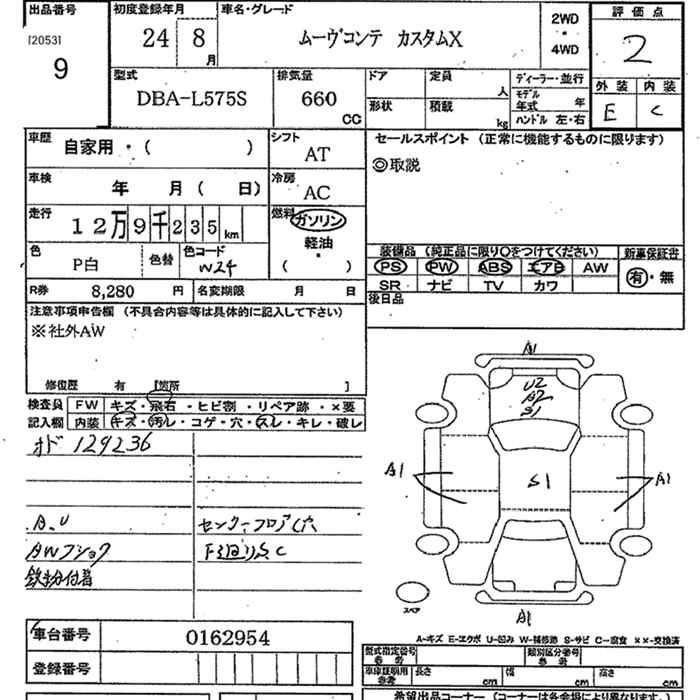 出品番号
[2053]
9
初度登録年月
24 8 月
車名・グレード
ムーヴコンテ カスタムX
2WD
・
4WD
評価点
2
外装 内装
E C
型式
DBA-L575S
排気量
660 CC
ドア
形状
定員 人
積載 kg
ディーラー・並行
モデル年式 年
ハンドル 左・右
車歴 自家用・( )
シフト
AT
セールスポイント (正常に機能するものに限ります)
◎取説
車検 年 月( 日)
冷房
AC
走行 12万9千235km
燃料 ガソリン
・
軽油
・
( )
色 P白
色替
色コード W24
装備品 (純正品に限り○をつけてください)
PS PW ABS エアB AW
SR ナビ TV カワ
新車保証書
有・無
R券 8,280 円
名変期限 月 日
後日品
注意事項申告欄 (不具合内容等は具体的に記入して下さい)
※社外AW
修復歴 有 [箇所 ]
検査員記入欄
FW キズ・飛石・ヒビ割・リペア跡・×要
内装 キズ・汚レ・コゲ・穴・スレ・キレ・破レ
オド 129236
A、U
AWフショク
鉄粉付着
センターフロア穴
下廻りS、C
A1
U2
A2
S1
A1
S1
A1
スペア
A1
A-キズ E-エクボ U-凹み W-補修跡 S-サビ C-腐食 ××-交換済
車台番号 0162954
登録番号
型式指定番号 参考
類別区分番号 参考
車庫証明用 参考
長さ cm
幅 cm
高さ cm
希望出品コーナー (コーナーは各会場により異なります。)